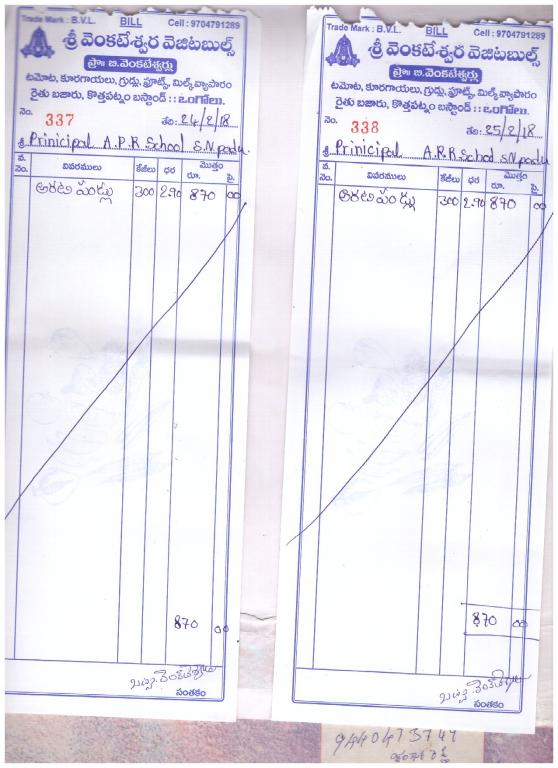 Trade Mark : B.V.L. BILL Cell : 9704791289
శ్రీ వెంకటేశ్వర వెజిటబుల్స్
ప్రొః బి.వెంకటేశ్వర్లు
టమోట, కూరగాయలు, గ్రుడ్లు, ఫ్రూట్స్, మిల్క్ వ్యాపారం
రైతు బజారు, కొత్తపట్నం బస్టాండ్ :: ఒంగోలు.
నెం. 337 తేది: 24/2/18
శ్రీ Prinicipal A.P.R School S.N padu.
వ. నెం. వివరములు కేజీలు ధర మొత్తం రూ. పై.
అరటి పండ్లు 300 2.90 870 00
870 00
సంతకం
Trade Mark : B.V.L. BILL Cell : 9704791289
శ్రీ వెంకటేశ్వర వెజిటబుల్స్
ప్రొః బి.వెంకటేశ్వర్లు
టమోట, కూరగాయలు, గ్రుడ్లు, ఫ్రూట్స్, మిల్క్ వ్యాపారం
రైతు బజారు, కొత్తపట్నం బస్టాండ్ :: ఒంగోలు.
నెం. 338 తేది: 25/2/18
శ్రీ Prinicipal A.P.R School S.N padu
వ. నెం. వివరములు కేజీలు ధర మొత్తం రూ. పై.
అరటి పండ్లు 300 2.90 870 00
870 00
సంతకం